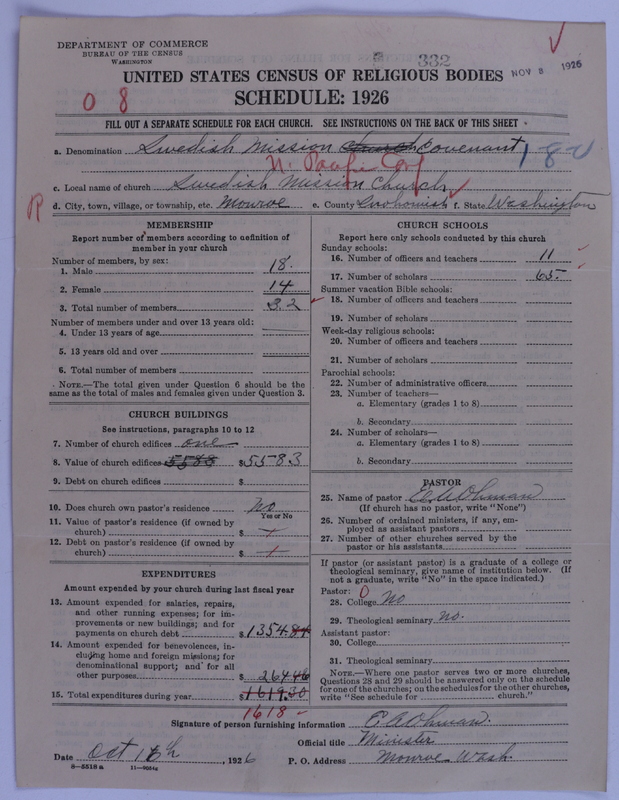 DEPARTMENT OF COMMERCE
BUREAU OF THE CENSUS
WASHINGTON
332
NOV 8 1926
UNITED STATES CENSUS OF RELIGIOUS BODIES
SCHEDULE: 1926
0 8
FILL OUT A SEPARATE SCHEDULE FOR EACH CHURCH. SEE INSTRUCTIONS ON THE BACK OF THIS SHEET
a. Denomination Swedish Mission Church Covenant
N. Pacific Conf
c. Local name of church Swedish Mission Church
d. City, town, village, or township, etc. Monroe e. County Snohomish f. State Washington
MEMBERSHIP
Report number of members according to definition of
member in your church
Number of members, by sex:
1. Male 18.
2. Female 14
3. Total number of members 32
Number of members under and over 13 years old:
4. Under 13 years of age
5. 13 years old and over
6. Total number of members
NOTE.—The total given under Question 6 should be the
same as the total of males and females given under Question 3.
CHURCH BUILDINGS
See instructions, paragraphs 10 to 12
7. Number of church edifices one
8. Value of church edifices 5588 $5583
9. Debt on church edifices $
10. Does church own pastor's residence No
Yes or No
11. Value of pastor's residence (if owned by
church) $
12. Debt on pastor's residence (if owned by
church) $
EXPENDITURES
Amount expended by your church during last fiscal year
13. Amount expended for salaries, repairs,
and other running expenses; for im-
provements or new buildings; and for
payments on church debt $1354.84
14. Amount expended for benevolences, in-
cluding home and foreign missions; for
denominational support; and for all
other purposes 264.46
15. Total expenditures during year $1619.30
1618 -
CHURCH SCHOOLS
Report here only schools conducted by this church
Sunday schools:
16. Number of officers and teachers 11
17. Number of scholars 65.
Summer vacation Bible schools:
18. Number of officers and teachers
19. Number of scholars
Week-day religious schools:
20. Number of officers and teachers
21. Number of scholars
Parochial schools:
22. Number of administrative officers
23. Number of teachers—
a. Elementary (grades 1 to 8)
b. Secondary
24. Number of scholars—
a. Elementary (grades 1 to 8)
b. Secondary
PASTOR
25. Name of pastor E. A. Ohman
(If church has no pastor, write "None")
26. Number of ordained ministers, if any, em-
ployed as assistant pastors
27. Number of other churches served by the
pastor or his assistants
If pastor (or assistant pastor) is a graduate of a college or
theological seminary, give name of institution below. (If
not a graduate, write "No" in the space indicated.)
Pastor: 0
28. College No
29. Theological seminary no.
Assistant pastor:
30. College
31. Theological seminary
NOTE.—Where one pastor serves two or more churches,
Questions 28 and 29 should be answered only on the schedule
for one of the churches; on the schedules for the other churches,
write "See schedule for church."
Signature of person furnishing information E. A. Ohman.
Official title Minister
Date Oct 16th, 1926 P. O. Address Monroe Wash.
8—5518 a 11—9054a